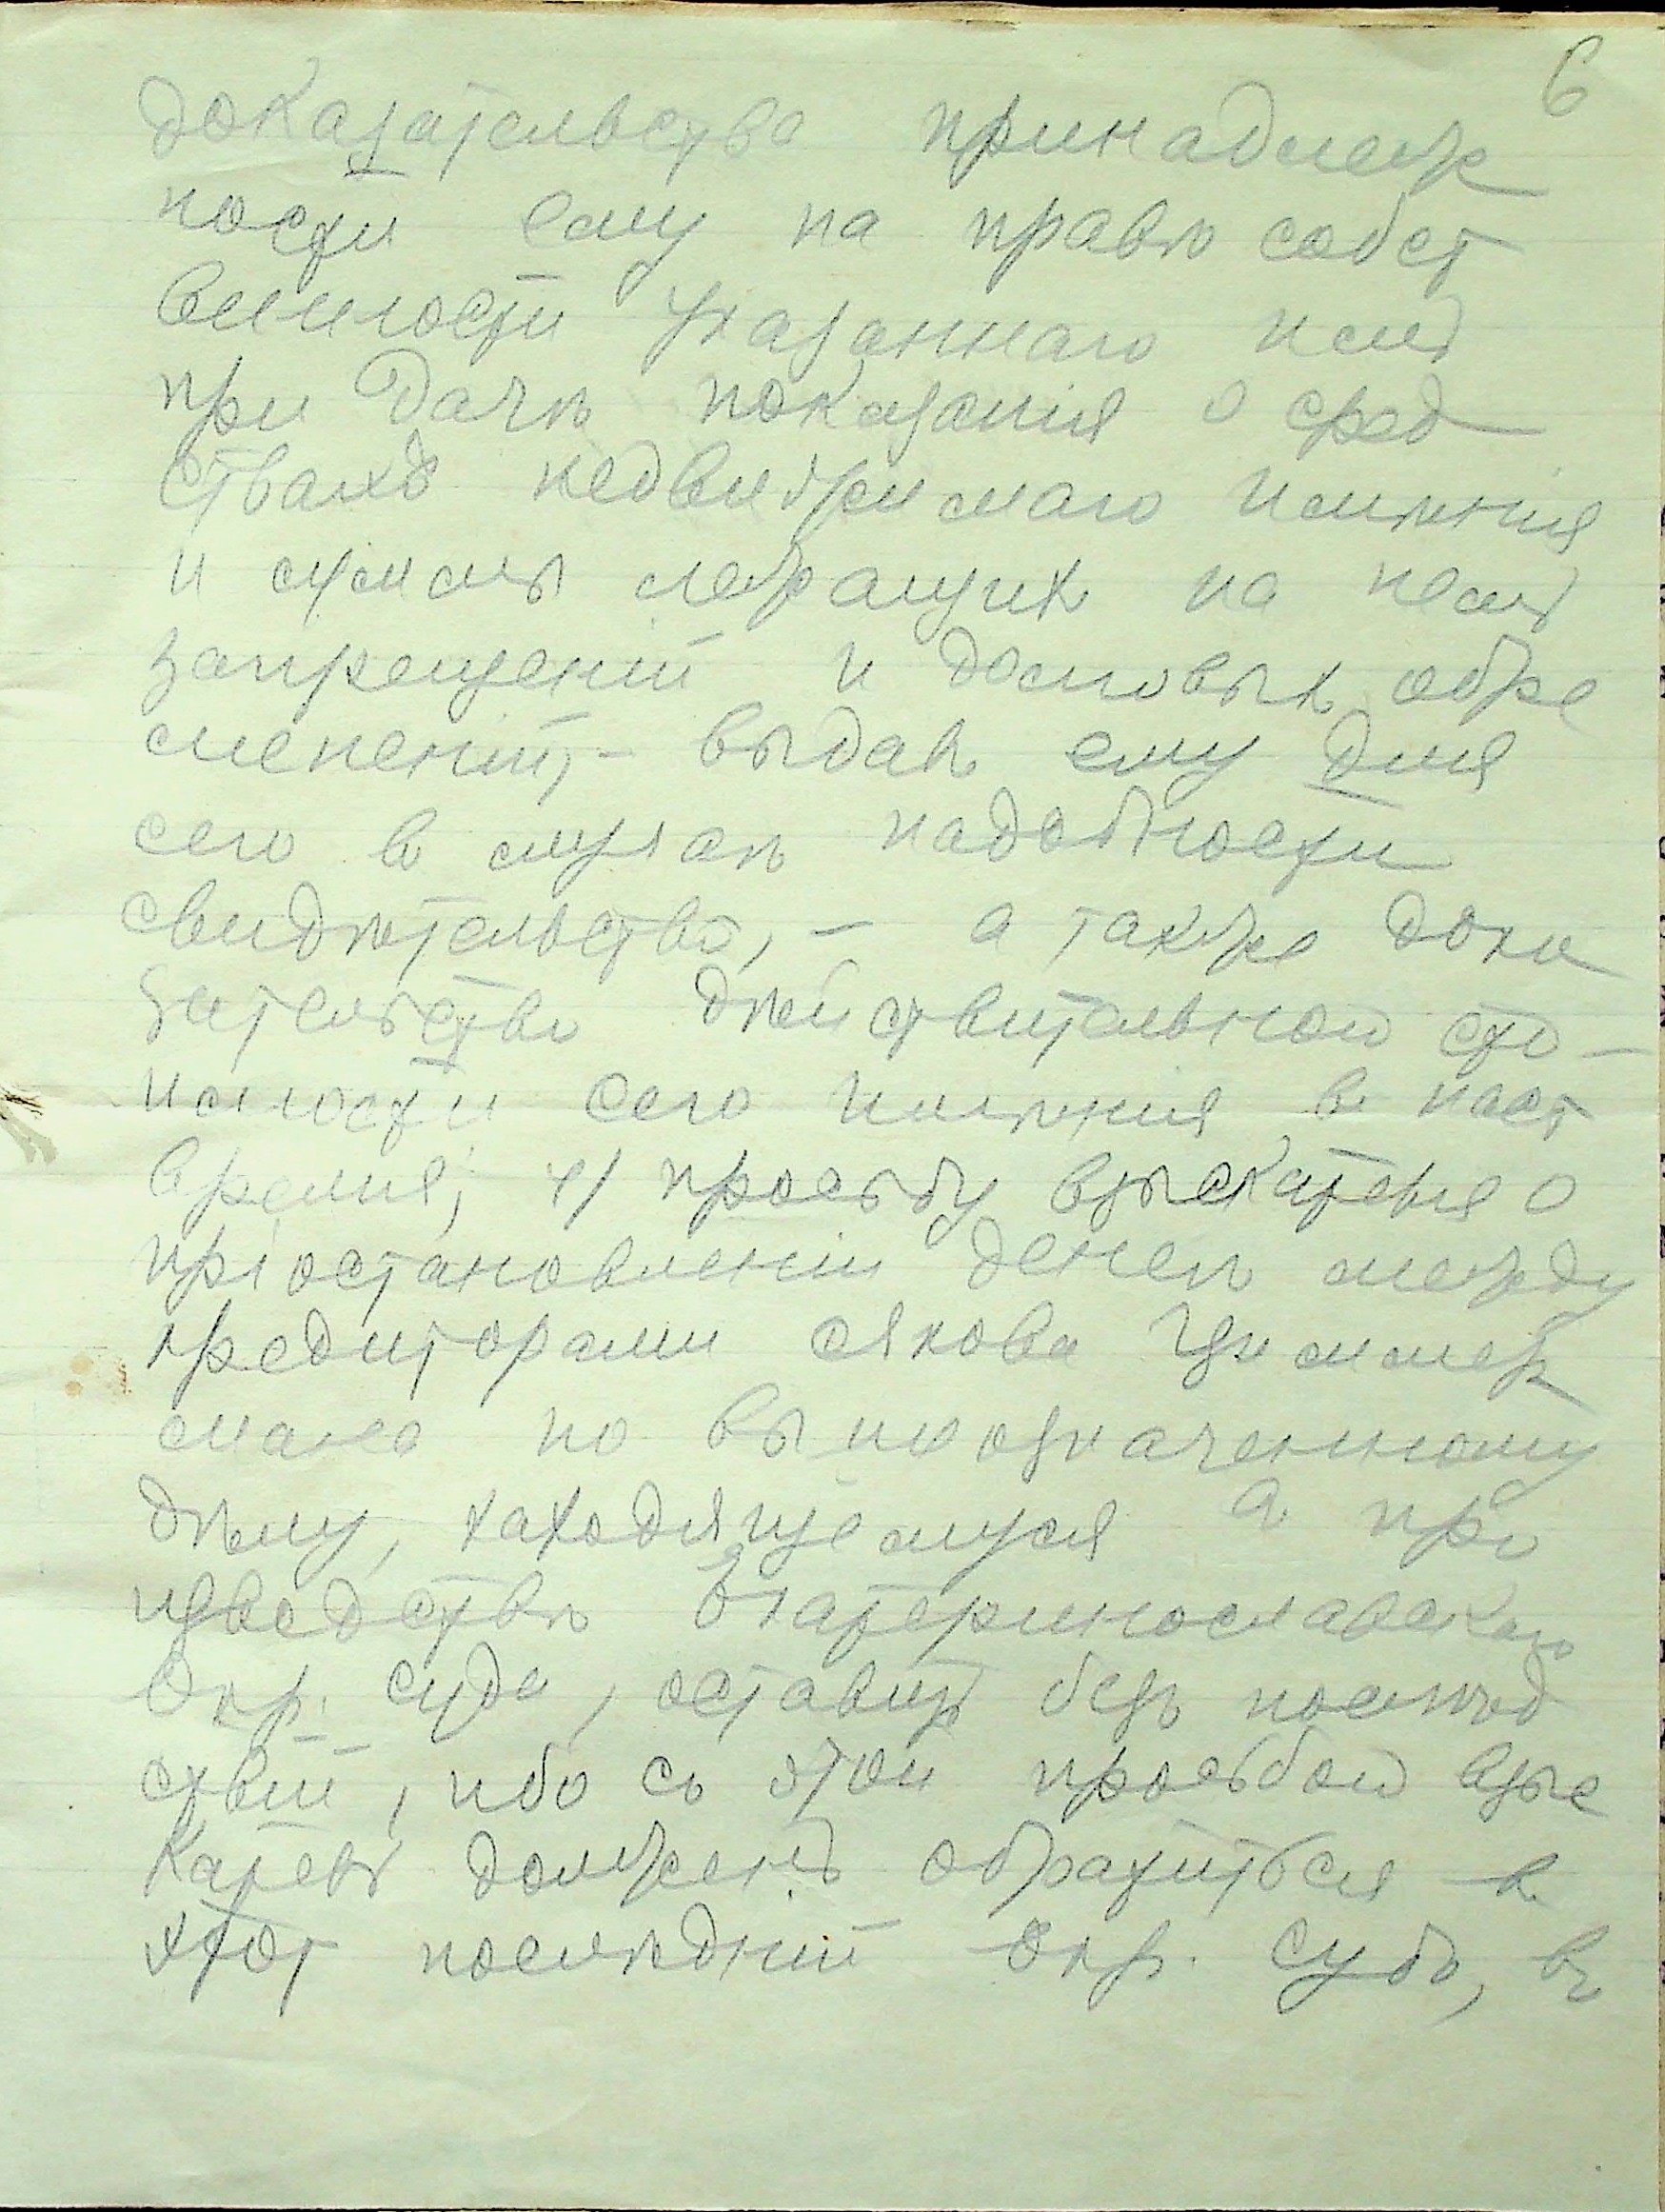 6
доказательства принадлеж
ности ему на правѣ собст
венности указаннаго имъ
при дачѣ показанія о сред
ствахъ недвижимаго имѣнія
и суммы лежащихъ на немъ
запрещеній и долговыхъ обре
мененій, – выдавъ ему для
сего въ случаѣ надобности
свидѣтельство, – а также дока
зательства дѣйствительной сто–
имости сего имѣнія въ наст
время; 4/ просьбу взыскателя о
пріостановленіи денегъ между
кредиторами Якова Циммер
мана по вышеозначенному
дѣлу, находящемуся въ про
изводствѣ Екатеринославскаго
Окр. суда, оставить безъ послѣд
ствій, ибо съ этой просьбой взыс
катель долженъ обратиться въ
этотъ послѣдній Окр. судъ, въ